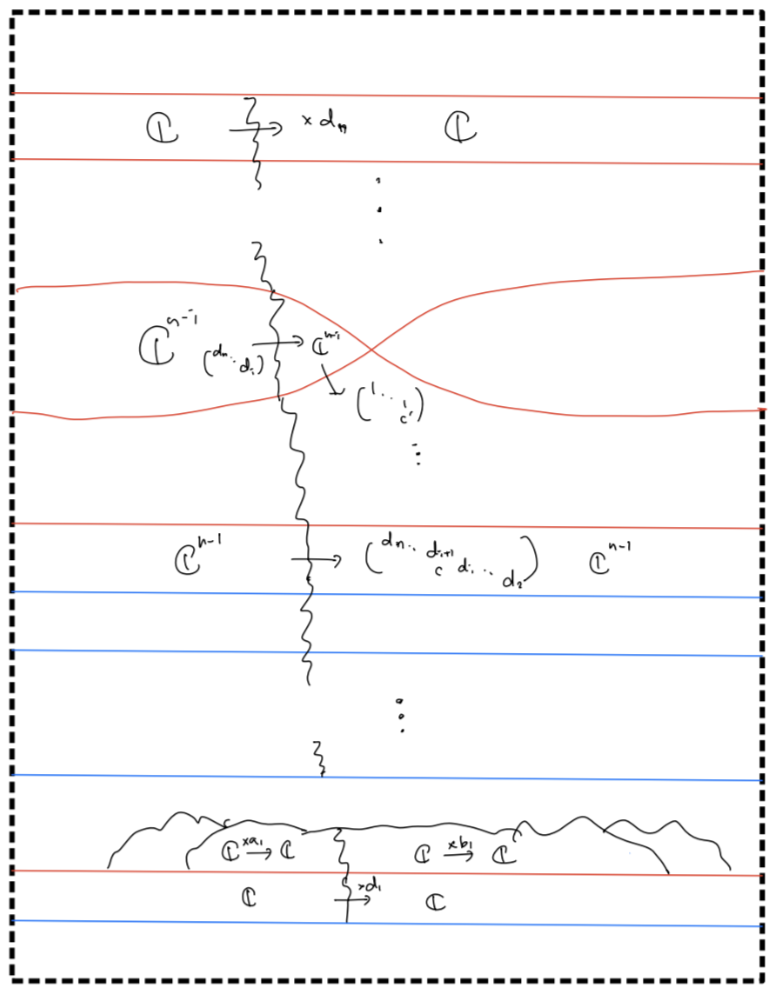 ℂ → × dₙ ℂ
⋮
ℂⁿ⁻ⁱ (dₙ ⋱ dᵢ) → ℂⁿ⁻ⁱ
↘ (1 ⋱ 1 c')
⋮
ℂⁿ⁻¹ → (dₙ ⋱ dᵢ₊₁ c dᵢ ⋱ d₂) ℂⁿ⁻¹
⋮
ℂ ×a₁ → ℂ ℂ ×b₁ → ℂ
ℂ → ×d₁ ℂ